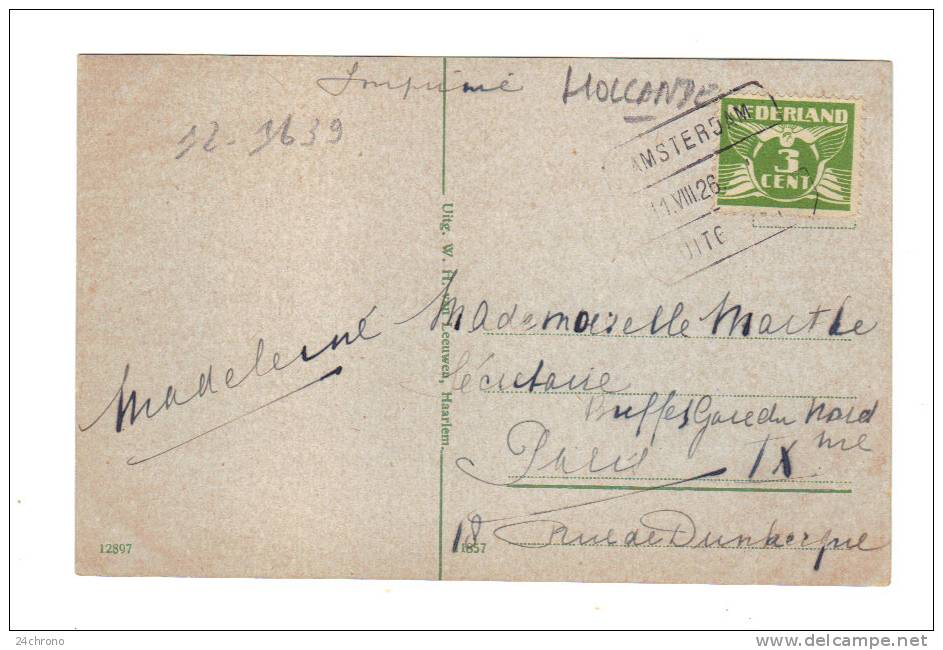 Imprimé
HOLLANDE
12-1639
NEDERLAND
3
CENT
AMSTERDAM
11.VIII.26
Uitg. W. H. van Leeuwen, Haarlem.
Madeleine
Mademoiselle Marthe
Sécretaire
Buffet Gare du Nord
Paris IX me
18 Rue de Dunkerque
12897
1857
24chrono
www.delcampe.net